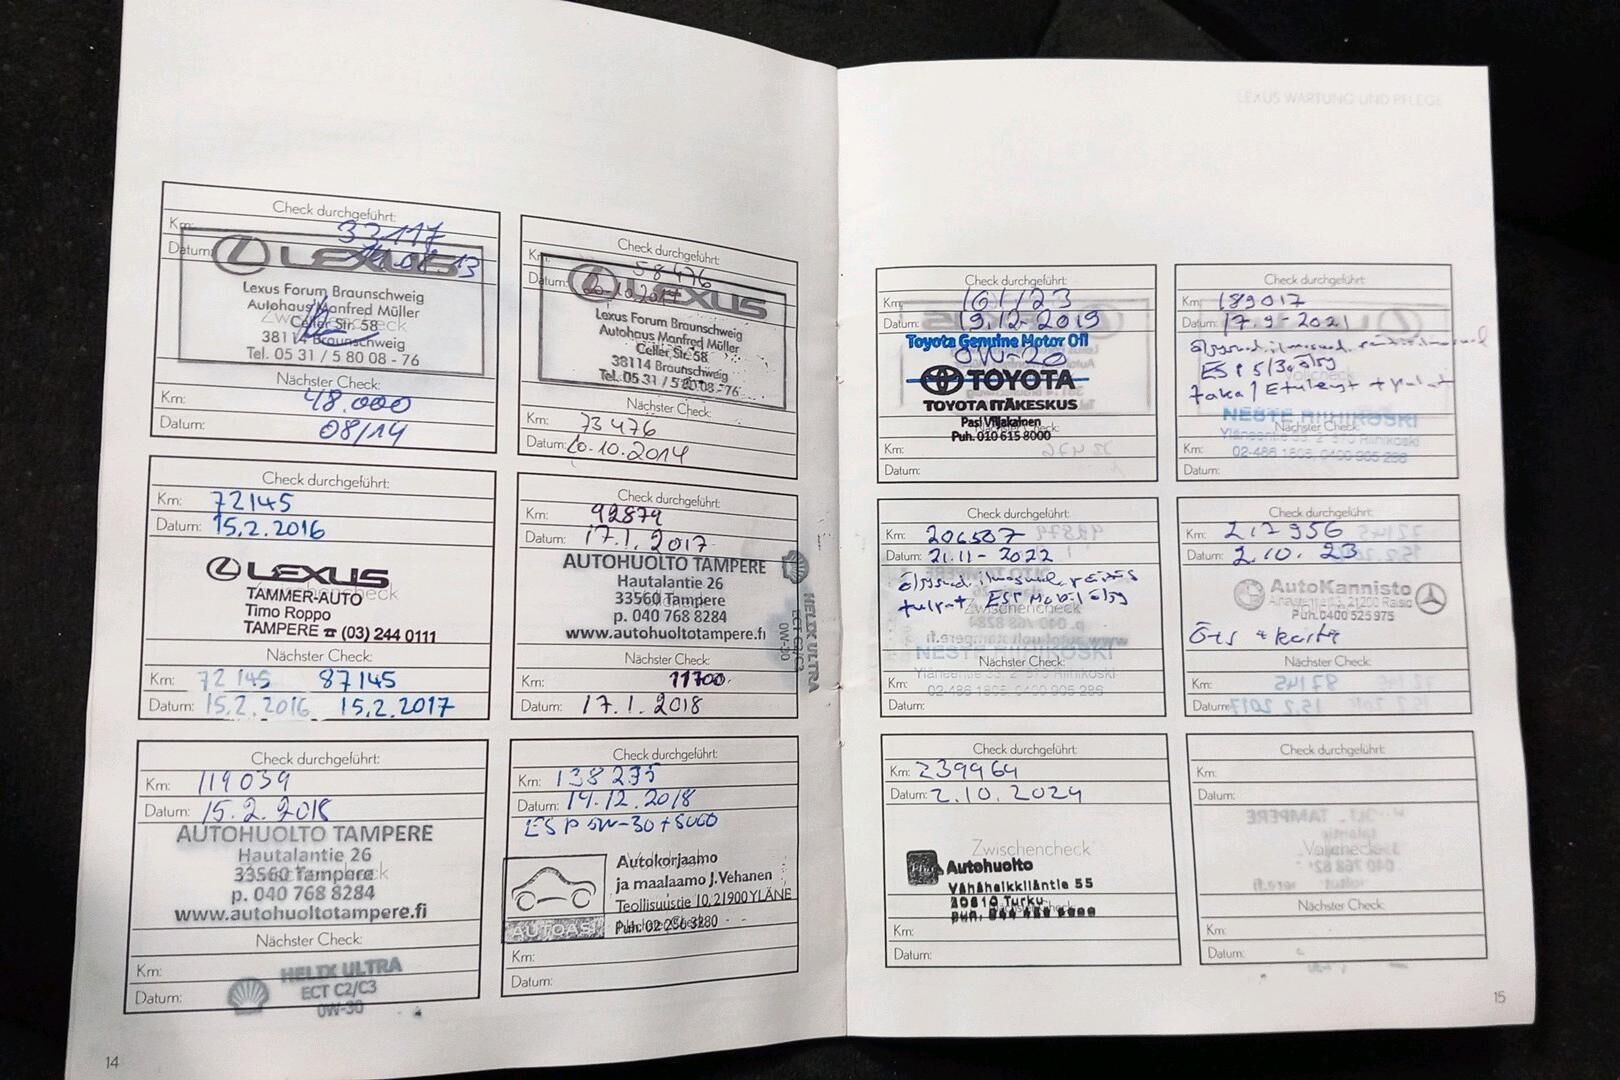 LEXUS WARTUNG UND PFLEGE
Check durchgeführt:
Km: 33117
Datum: 14.08.13
LEXUS
Lexus Forum Braunschweig
Autohaus Manfred Müller
Celler Str. 58
38114 Braunschweig
Tel. 05 31 / 5 80 08 - 76
Nächster Check:
Km: 48.000
Datum: 08/14
Check durchgeführt:
Km: 58476
Datum:
LEXUS
Lexus Forum Braunschweig
Autohaus Manfred Müller
Celler Str. 58
38114 Braunschweig
Tel. 05 31 / 5 80 08 - 76
Nächster Check:
Km: 73 476
Datum: 20.10.2014
Check durchgeführt:
Km: 72145
Datum: 15.2.2016
LEXUS
TAMMER-AUTO
Timo Roppo
TAMPERE ☎ (03) 244 0111
Nächster Check:
Km: 72145 87145
Datum: 15.2.2016 15.2.2017
Check durchgeführt:
Km: 92879
Datum: 17.1.2017
AUTOHUOLTO TAMPERE
Hautalantie 26
33560 Tampere
p. 040 768 8284
www.autohuoltotampere.fi
HELIX ULTRA
ECT C2/C3
0W-30
Nächster Check:
Km: 11700.
Datum: 17.1.2018
Check durchgeführt:
Km: 119039
Datum: 15.2.2018
AUTOHUOLTO TAMPERE
Hautalantie 26
33560 Tampere
p. 040 768 8284
www.autohuoltotampere.fi
Nächster Check:
Km:
Datum:
HELIX ULTRA
ECT C2/C3
0W-30
Check durchgeführt:
Km: 138235
Datum: 14.12.2018
ESP 5W-30 + SUOD
AUTOASI
Autokorjaamo
ja maalaamo J.Vehanen
Teollisuustie 10, 21900 YLÄNE
Puh. 02 256 3280
Km:
Datum:
14
Check durchgeführt:
Km: 161723
Datum: 19.12-2019
Toyota Genuine Motor Oil
0W-20
TOYOTA
TOYOTA ITÄKESKUS
Pasi Viljakainen
Puh. 010 615 8000
Km:
Datum:
Check durchgeführt:
Km: 189017
Datum: 17.9-2021
ESP 5/30 öljy
NESTE RIIHIKOSKI
Nächster Check:
Km:
Datum:
Check durchgeführt:
Km: 206507
Datum: 21.11-2022
ESP Mobil öljy
Zwischencheck
NESTE RIIHIKOSKI
Nächster Check:
Km:
Datum:
Check durchgeführt:
Km: 217956
Datum: 2.10.23
AutoKannisto
21200 Raisio
Puh.0400 525 975
Nächster Check:
Km:
Datum:
Check durchgeführt:
Km: 239964
Datum: 2.10.2024
Zwischencheck
Autohuolto
Vähäheikkiläntie 55
20810 Turku
Km:
Datum:
Check durchgeführt:
Km:
Datum:
Nächster Check:
Km:
Datum:
15